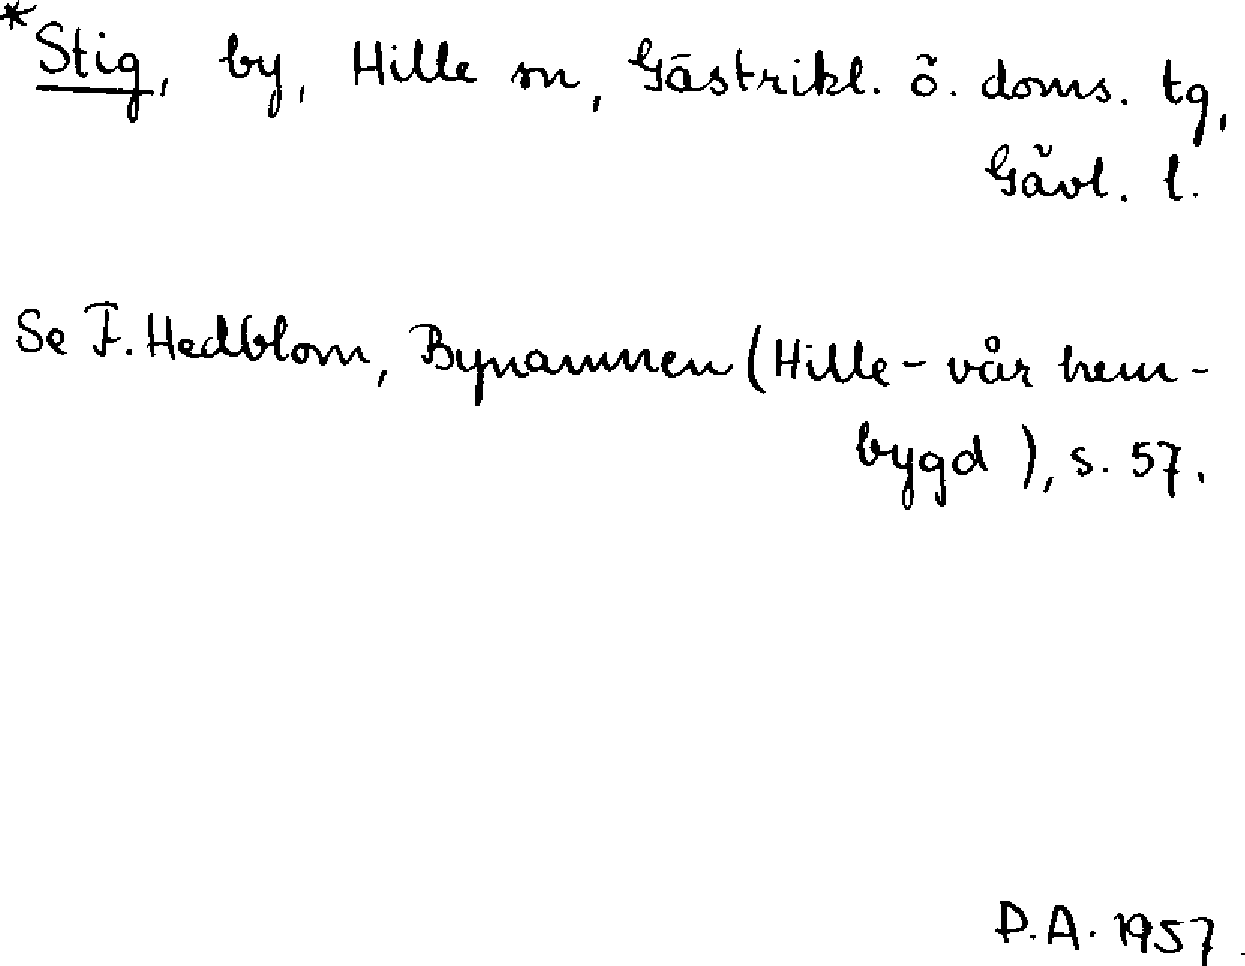 *Stig, by, Hille sn, Gästrikl. ö. doms. tg,
Gävl. l.
Se F. Hedblom, Bynamnen (Hille - vår hem-
bygd), s. 57.
P.A. 1957.